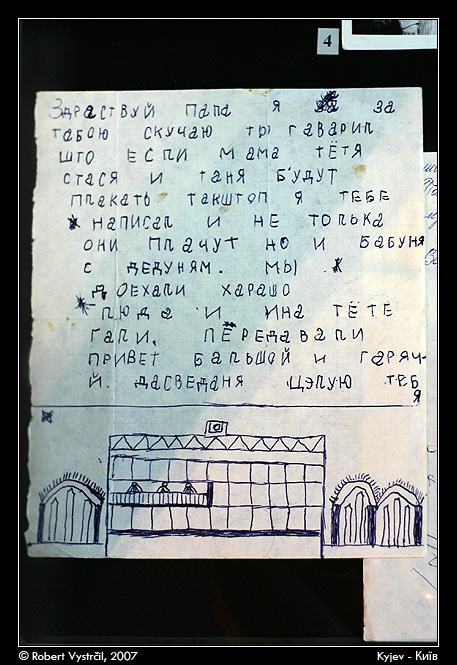 4
Здраствуй папа я за
табою скучаю ты гаварил
што если мама тётя
стася и таня будут
плакать такштоп я тебе
написал и не толька
они плачут но и бабуня
с дедуням. мы
доехали харашо
люда и ина тёте
гали. пёредавали
привет бальшой и гаряч-
й. дасведаня цэлую теб
я
© Robert Vystrčil, 2007
Kyjev - Київ